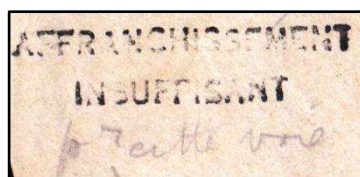 AFFRANCHISSEMENT
INSUFFISANT
pr cette voie